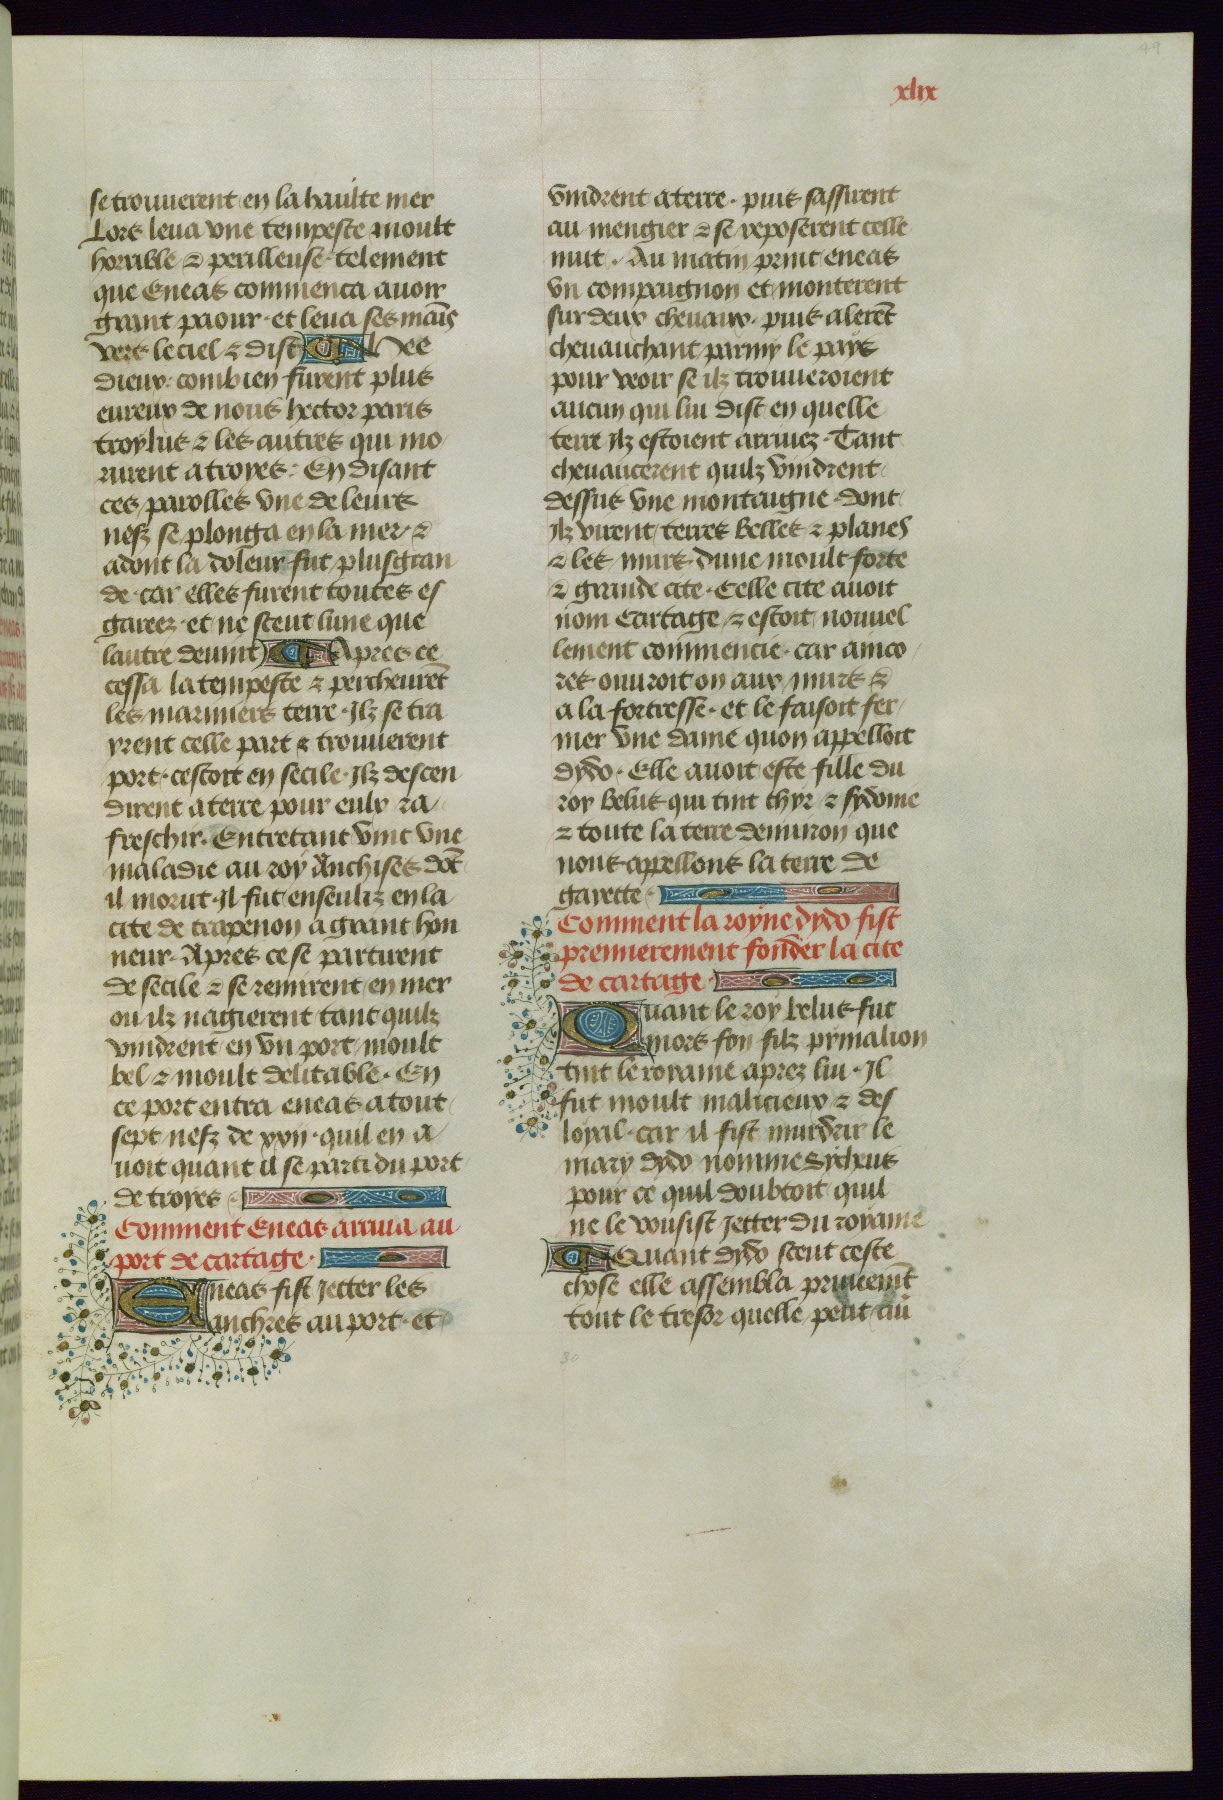 49
xlix
se trouuerent en la haulte mer
Lors leua vne tempeste moult
horrible & perilleuse telement
que Eneas commenca auoir
grant paour · et leua ses mais
vers le ciel & dist Hee
dieux: combien furent plus
eureux de nous hector paris
troylus & les autres qui mo
rurent a troyes: En disant
ces parolles vne de leurs
nefz se plonga en la mer · &
adont la doleur fut plus gran
de · car elles furent toutes es
garees · et ne sceut lune que
lautre deuint Apres ce
cessa la tempeste & percheurēt
les mariniers terre · Ilz se tra
yrent celle part & trouuerent
port · cestoit en secile · Ilz descen
dirent a terre pour eulx ra
freschir · Entretant vint vne
maladie au roy Anchises dōt
il morut · Il fut enseuliz en la
cite de trapenon a grant hon
neur · Apres ce se partirent
de secile & se remirent en mer
ou ilz nagierent tant quilz
vindrent en vn port moult
bel & moult delitable · En
ce port entra eneas a tout
sept nefz de xxii · quil en a
uoit quant il se parti du port
de troyes
Comment Eneas arriua au
port de cartage ·
Eneas fist jetter les
anchres au port · et
vindrent a terre · puis sassirent
au mengier & se reposerent celle
nuit · Au matin print eneas
vn compaignon et monterent
sur deux cheuaux · puis alerēt
cheuauchant parmy le pays
pour veoir se ilz trouueroient
aucun qui lui dist en quelle
terre ilz estoient arriuez · Tant
cheuaucerent quilz vindrent
dessus vne montaigne · dont
ilz virent terres belles & planes
& les murs dune moult forte
& grande cite · Celle cite auoit
nom Cartage & estoit nouuel
lement commencie · car ainco
res ouuroit on aux murs &
a la fortresse · et le faisoit fer
mer vne dame quon appelloit
dydo · Elle auoit este fille du
roy belus qui tint thyr & sydome
& toute la terre denuiron que
nous appellons la terre de
gayette
Comment la royne dydo fist
premierement fonder la cite
de cartage ·
Quant le roy belus fut
mors son filz pymalion
tint le royame aprez lui · Il
fut moult malicieux & des
loyal · car il fist murdrir le
mary dydo nomme Sycheus
pour ce quil doubtoit quil
ne le vousist jetter du royame
Quant dydo sceut ceste
chose elle assembla priueemt̄
tout le tresor quelle peut au
30